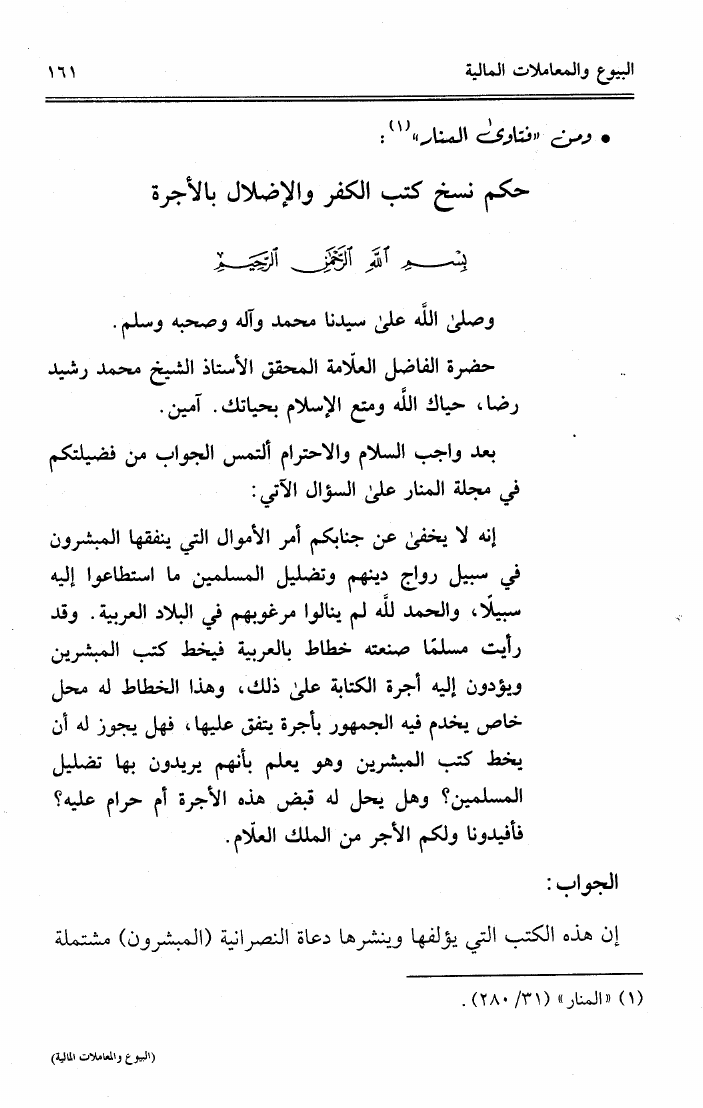 البيوع والمعاملات المالية ١٦١
• ومن «فتاوىٰ المنار»(١):
حكم نسخ كتب الكفر والإضلال بالأجرة
بِسْمِ اللَّهِ الرَّحْمَٰنِ الرَّحِيمِ
وصلىٰ اللَّه علىٰ سيدنا محمد وآله وصحبه وسلم.
حضرة الفاضل العلّامة المحقق الأستاذ الشيخ محمد رشيد
رضا، حياك اللَّه ومتع الإسلام بحياتك. آمين.
بعد واجب السلام والاحترام ألتمس الجواب من فضيلتكم
في مجلة المنار علىٰ السؤال الآتي:
إنه لا يخفىٰ عن جنابكم أمر الأموال التي ينفقها المبشرون
في سبيل رواج دينهم وتضليل المسلمين ما استطاعوا إليه
سبيلًا، والحمد للَّه لم ينالوا مرغوبهم في البلاد العربية. وقد
رأيت مسلمًا صنعته خطاط بالعربية فيخط كتب المبشرين
ويؤدون إليه أجرة الكتابة علىٰ ذلك، وهذا الخطاط له محل
خاص يخدم فيه الجمهور بأجرة يتفق عليها، فهل يجوز له أن
يخط كتب المبشرين وهو يعلم بأنهم يريدون بها تضليل
المسلمين؟ وهل يحل له قبض هذه الأجرة أم حرام عليه؟
فأفيدونا ولكم الأجر من الملك العلّام.
الجواب:
إن هذه الكتب التي يؤلفها وينشرها دعاة النصرانية (المبشرون) مشتملة
(١) «المنار» (٣١/ ٢٨٠).
(البيوع والمعاملات المالية)